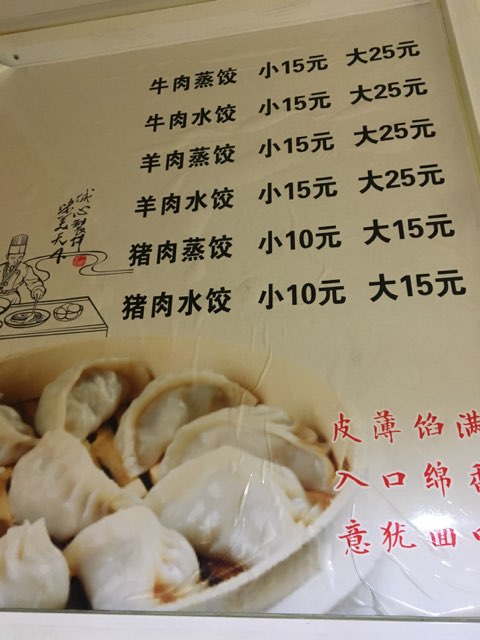 牛肉蒸饺 小15元 大25元
牛肉水饺 小15元 大25元
羊肉蒸饺 小15元 大25元
羊肉水饺 小15元 大25元
猪肉蒸饺 小10元 大15元
猪肉水饺 小10元 大15元
皮薄馅满
入口绵香
意犹面